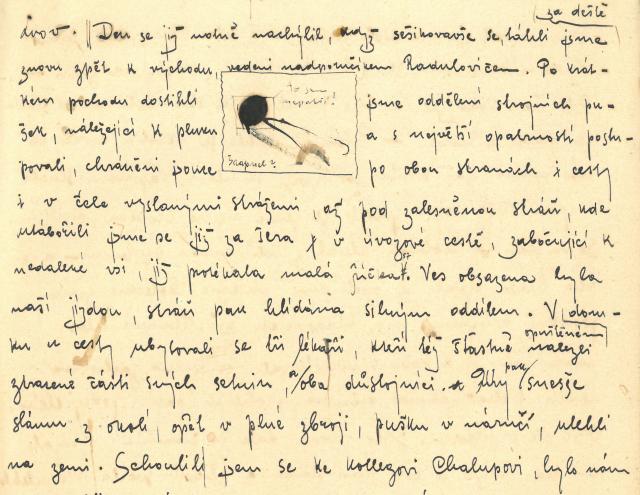 za deště
dvov. || Den se již notně nachýlil, když sešikovavše se, táhli jsme
znovu zpět k východu, vedeni nadporučíkem Radulovičem. Po krát-
kém pochodu dostihli jsme oddělení strojních pu-
šek, náležející k pluku a s největší opatrností postu-
povali, chráněni pouze po obou stranách i cesty
i v čele vyslanými strážemi, až pod zalesněnou stráň, kde
utábořili jsme se již za šera v úvozové cestě, zabočující k
nedaleké vsi, již protékala malá říčka. Ves obsazena byla
naší jízdou, stráň pak hlídána silným oddílem. V dom-
opuštěném
ku u cesty ubytovali se tři lékaři, kteří též šťastně nalezli
ztracené části svých setnin, a oba důstojníci. My pak snesše
slámu z okolí, opět v plné zbroji, pušku v náručí, ulehli
na zemi. Schoulil jsem se ke kollegovi Chalupovi, bylo nám